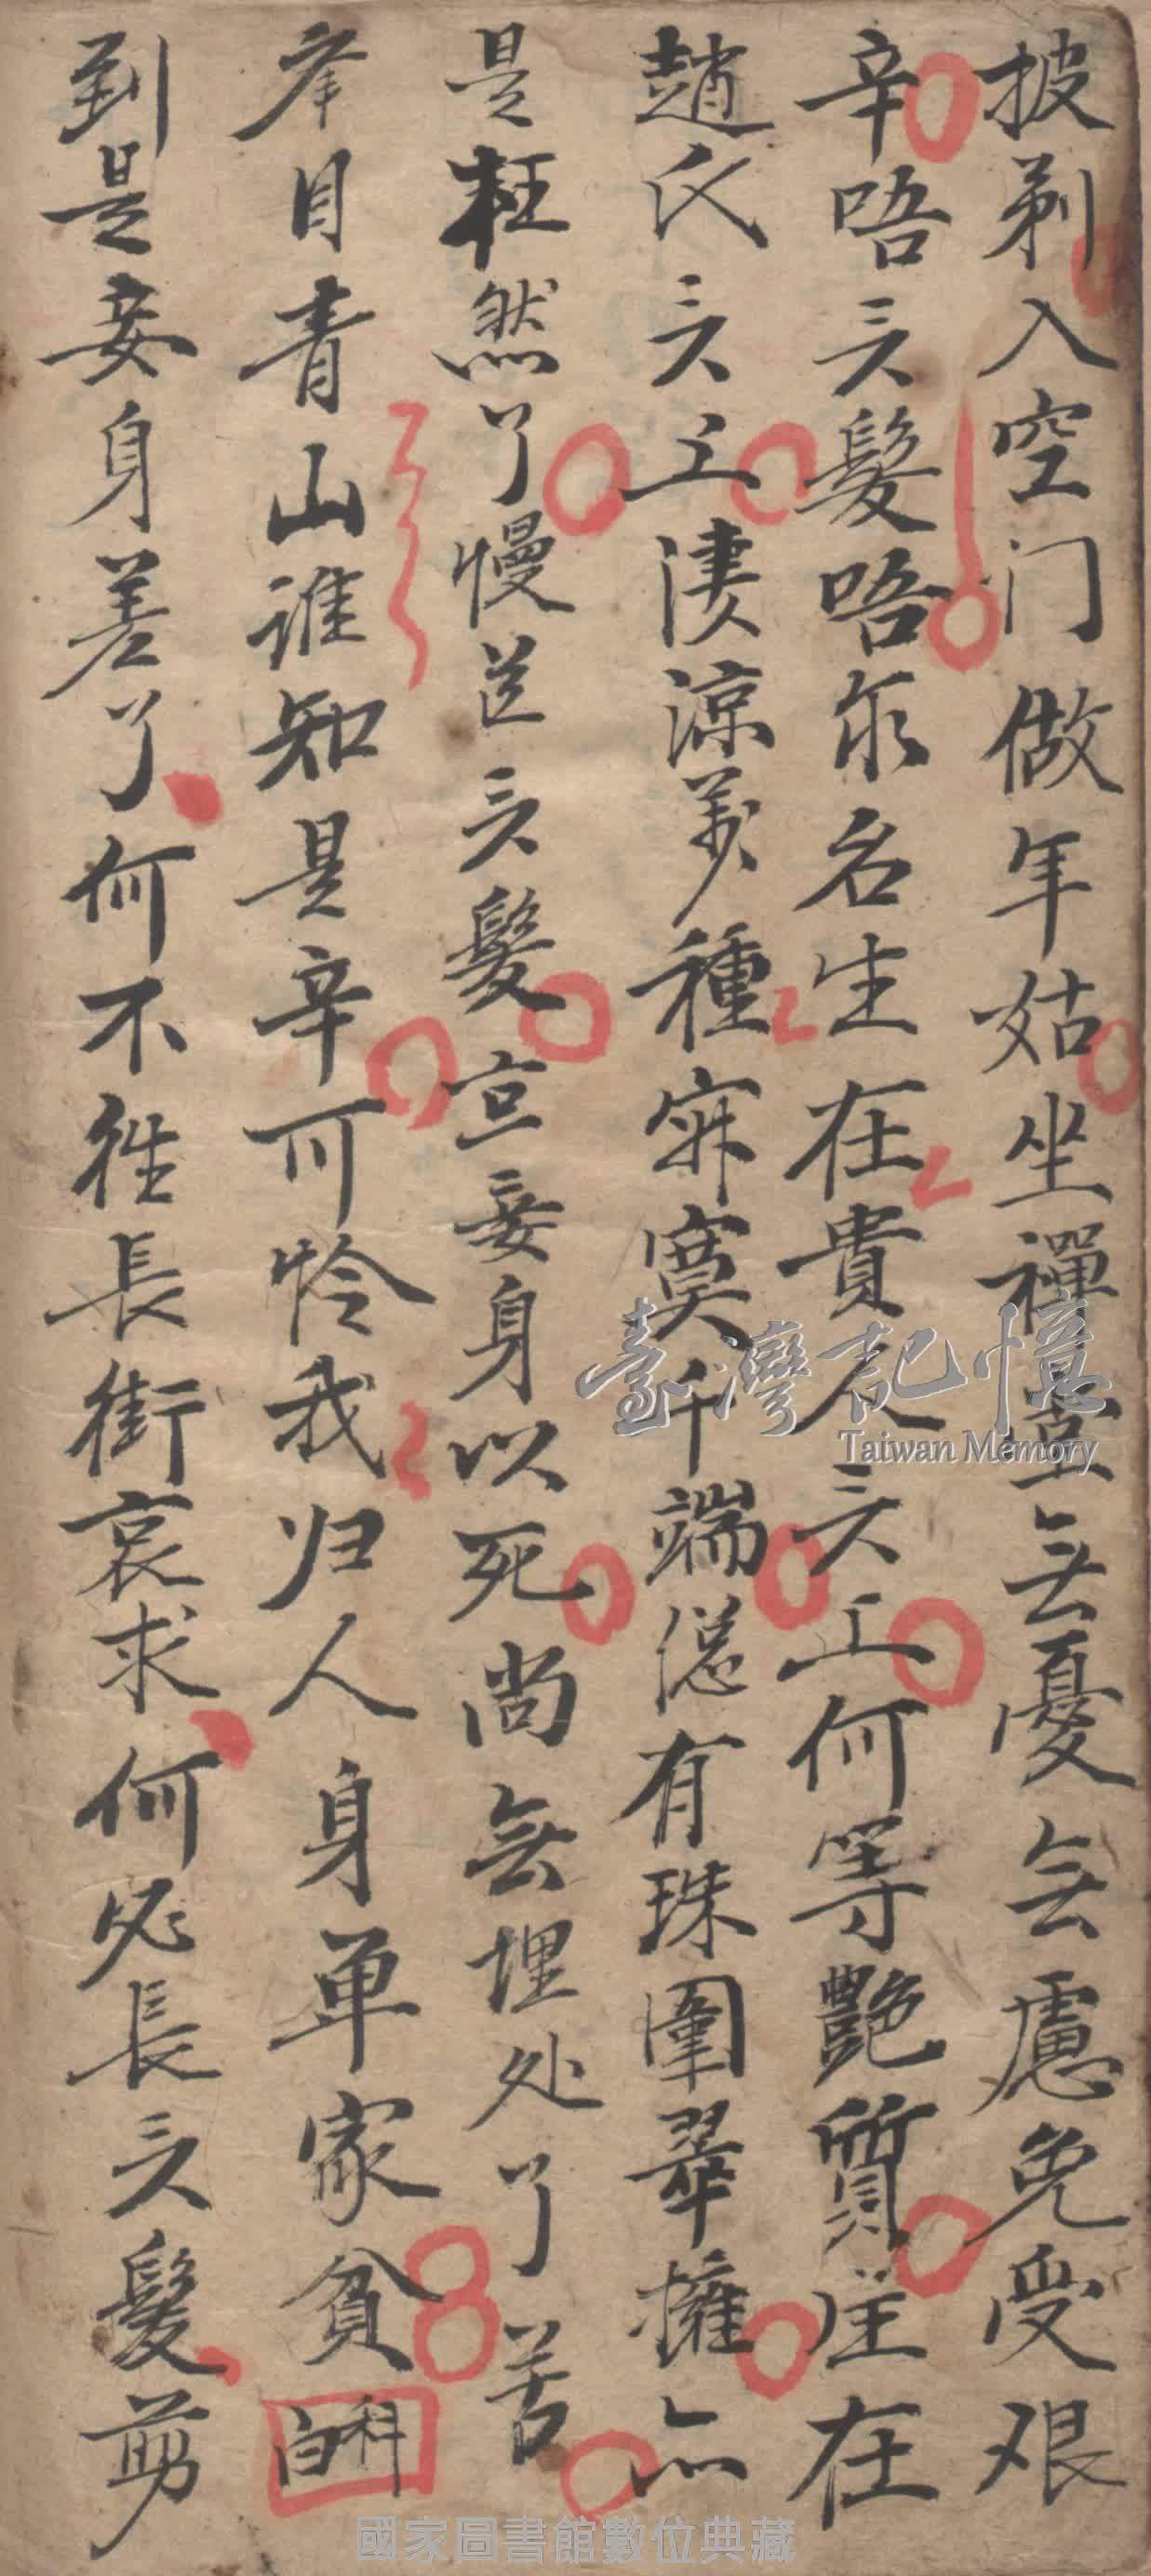 披剃入空门做年姑坐禪堂無憂無慮免受艰
辛唔头髮唔尔名生在貴人头上何等艷質生在
趙氏头上淒凉萬種寂寞千端总有珠圍翠擁亦
是枉然了慢送头髮言妾身以死尚無埋处了苦
举目青山谁知是辛可怜我归人身单家貧
白科
到是妾身差了何不徃長街哀求何必長头髮剪
臺灣記憶
Taiwan Memory
國家圖書館數位典藏